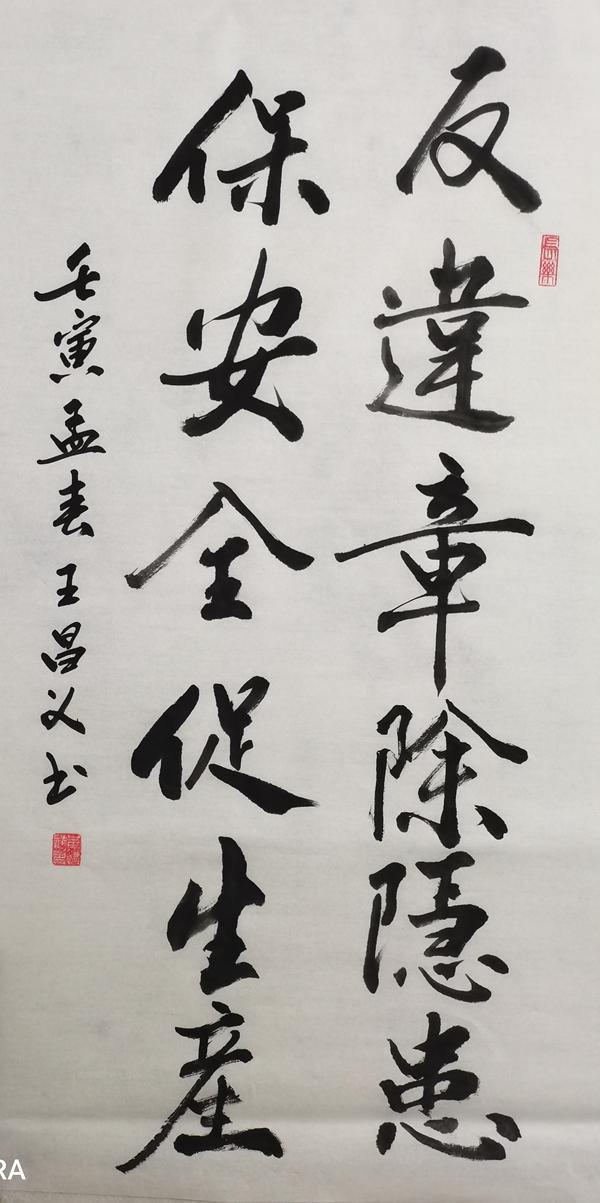 反違章除隱患
保安全促生産
壬寅孟春王昌义书
RA